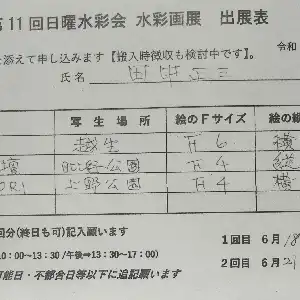 第11回日曜水彩会 水彩画展 出展表
令和
を添えて申し込みます【搬入時徴収も検討中です】
氏名
写生場所 絵のFサイズ 絵の縦
越生 F6 横
公園 F4 縦
上野公園 F4 横
回分(終日も可)記入願います
10:00~13:30/午後⇒13:30~17:00)
1回目 6月18
2回目 6月21
可能日・不都合日等以下に追記願います